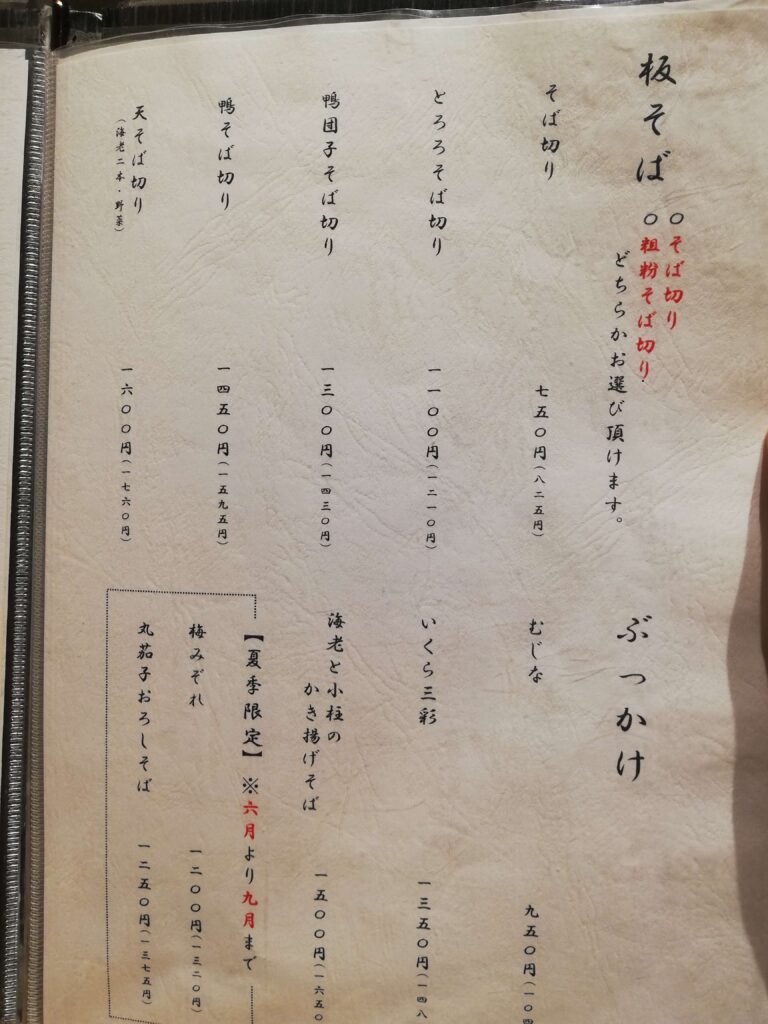 板そば
〇そば切り
〇粗粉そば切り
どちらかお選び頂けます。
そば切り 七五〇円(八二五円)
とろろそば切り 一一〇〇円(一二一〇円)
鴨団子そば切り 一三〇〇円(一四三〇円)
鴨そば切り 一四五〇円(一五九五円)
天そば切り 一六〇〇円(一七六〇円)
(海老二本・野菜)
ぶっかけ
むじな 九五〇円(一〇四
いくら三彩 一三五〇円(一四八
海老と小柱の
かき揚げそば 一五〇〇円(一六五〇
【夏季限定】※六月より九月まで
梅みぞれ 一二〇〇円(一三二〇円)
丸茄子おろしそば 一二五〇円(一三七五円)